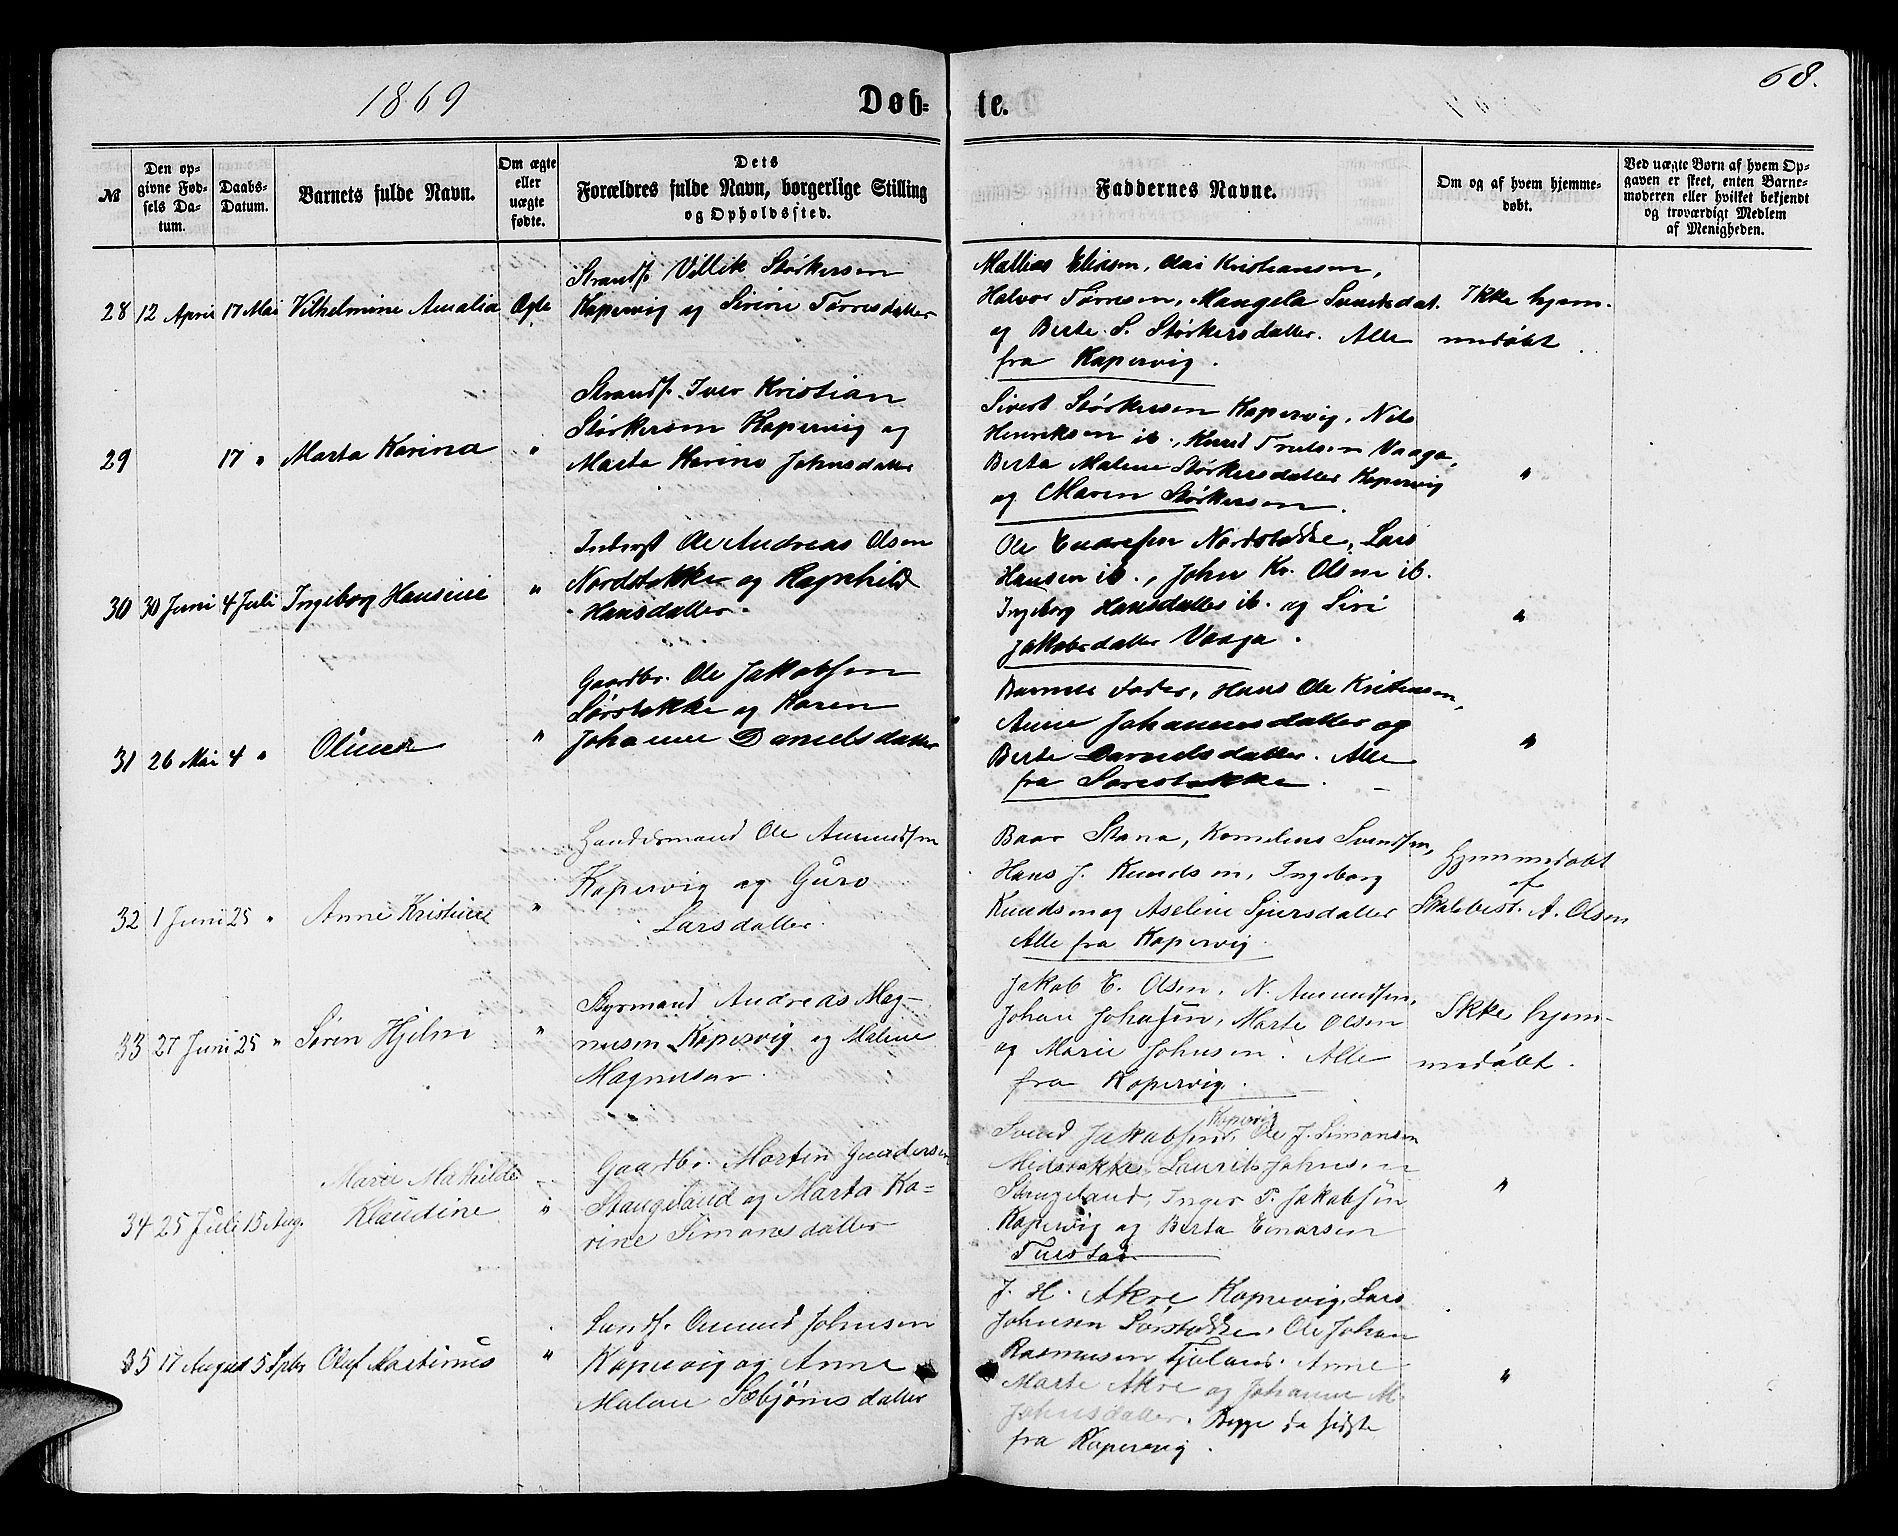 1869
Døb-
te.
68.
№
Den op-
givne Fød-
sels Da-
tum.
Daabs-
Datum.
Barnets fulde Navn.
Om ægte
eller
uægte
fødte.
Dets
Forældres fulde Navn, borgerlige Stilling
og Opholdssted.
Faddernes Navne.
Om og af hvem hjemme-
døbt.
Ved uægte Børn af hvem Op-
gaven er skeet, enten Barne-
moderen eller hvilket bekjendt
og troværdigt Medlem
af Menigheden.
28 12 April 17 Mai Vilhelmine Amalia Ægte
Strandf. Villik Størkersen
Kopervig og Sirine Tørresdatter
Mathias Eliasen, Kristiansen,
Halvor Tørresen, Mangela Svendsdat.
og Berte S. Størkersdatter. Alle
fra Kopervig.
Ikke hjem-
medøbt.
29 17 " Marta Karina "
Strandf. Iver Kristian
Størkersen Kopervig og
Marta Karine Johnsdatter
Sivert Størkersen Kopervig, Nils
Henriksen ib., Knud Truelsen Vaaga,
Berta Malene Størkersdatter Kopervig
og Maren Størkersen.
"
30 30 Juni 4 Juli Ingeborg Hansine "
Inderst Ole Andreas Olsen
Nordstokke og Ragnhild
Hansdatter.
Ole Endresen Nordstokke, Lars
Hansen ib., John Kr. Olsen ib.
Ingeborg Hansdatter ib. og Siri
Jakobsdatter Vaaga.
"
31 26 Mai 4 " Oline "
Gaardbr. Ole Jakobsen
Sørstokke og Karen
Johanne Danielsdatter
Barnets Fader, Hans Ole Kristensen,
Anne Johannesdatter og
Berte Danielsdatter. Alle
fra Sørestokke.
"
32 1 Juni 25 " Anne Kristine "
Handelsmand Ole Amundsen
Kopervig og Guro
Larsdatter.
Baar Stana, Kornelius Svendsen,
Hans J. Knudsen, Ingeborg
Knudsen og Aseline Sjursdatter
Alle fra Kopervig.
Hjemmedøbt
af
A. Olsen
33 27 Juni 25 " Søren Hjelm "
Styrmand Andreas Mag-
nusen Kopervig og Malene
Magnusen.
Jakob E. Olsen, N. Amundsen,
Johan Johnsen, Marte Olsen
og Marie Johnsen. Alle
fra Kopervig.
Ikke hjem-
medøbt.
34 25 Juli 15 Aug. Marie Mathilde
Klaudine "
Gaardbr. Morten Gundersen
Stangeland og Marta Ka-
rine Simonsdatter
Svend Jakobsen Kopervig, Ole J. Simonsen
Midstokke, Laurits Johnsen
Stangeland, Inger T. Jakobsen
Kopervig og Berta Einarsen
"
35 17 August 5 Sptbr Olaf Martinus "
Landf. Osmund Johnsen
Kopervig og Anne
Malene Sæbjørnsdatter
J. H. Akre Kopervig, Lars
Johnsen Sørstokke, Ole Johan
Rasmusen Fjeland, Anne
Marte Akre og Johanne M.
Johnsdatter. Begge de sidste
fra Kopervig.
"